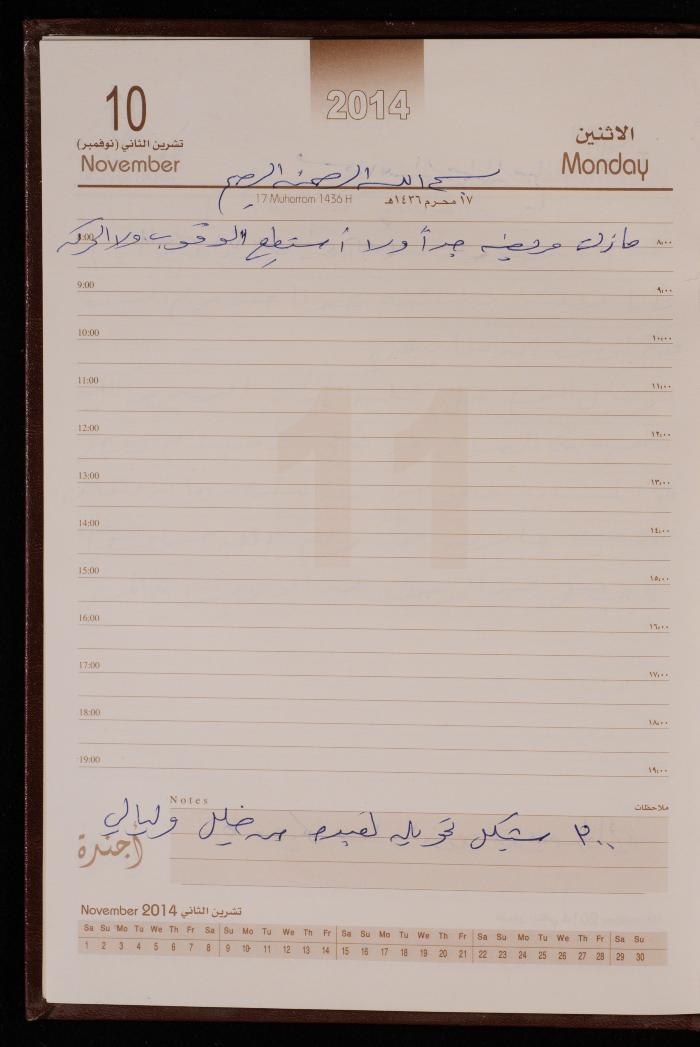 2014
10
تشرين الثاني (نوفمبر)
November
الاثنين
Monday
بسم الله الرحمن الرحيم
17 Muharram 1436 H
١٧ محرم ١٤٣٦هـ
مازلت مريضه جداً ولا أستطع الوقوب ولا الحركه
8:00 ٨:٠٠
9:00 ٩:٠٠
10:00 ١٠:٠٠
11:00 ١١:٠٠
12:00 ١٢:٠٠
13:00 ١٣:٠٠
14:00 ١٤:٠٠
15:00 ١٥:٠٠
16:00 ١٦:٠٠
17:00 ١٧:٠٠
18:00 ١٨:٠٠
19:00 ١٩:٠٠
11
Notes
ملاحظات
٣٠٠ شيكل تحويله من خليل وليالي
أجندة
November 2014 تشرين الثاني
Sa Su Mo Tu We Th Fr Sa Su Mo Tu We Th Fr Sa Su Mo Tu We Th Fr Sa Su Mo Tu We Th Fr Sa Su
1 2 3 4 5 6 7 8 9 10 11 12 13 14 15 16 17 18 19 20 21 22 23 24 25 26 27 28 29 30